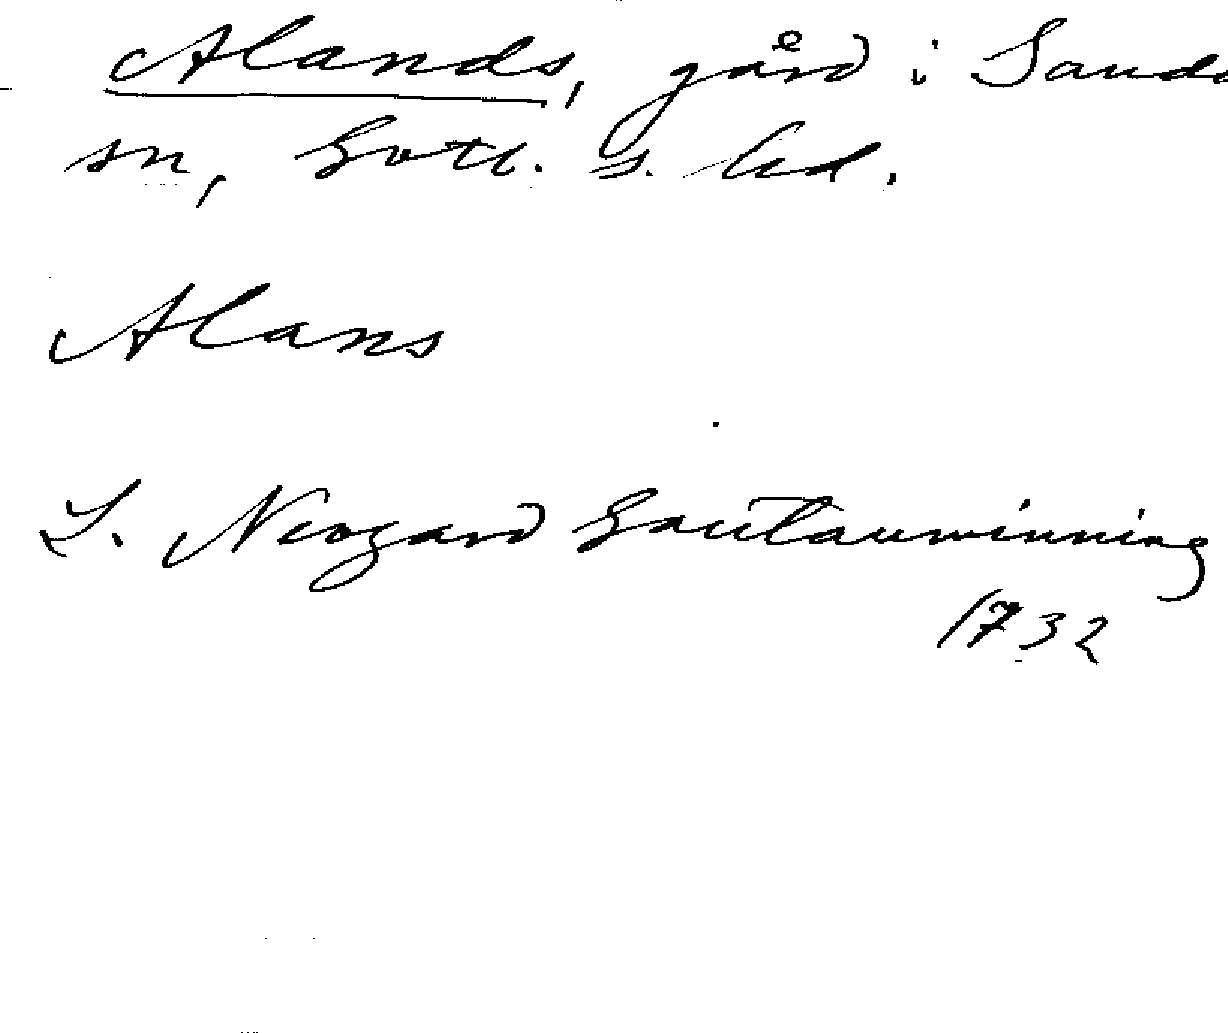 Alands, gård i Sanda
sn, Gotl. s. hd.
Alans
L. Neogard Gautauminning
1732